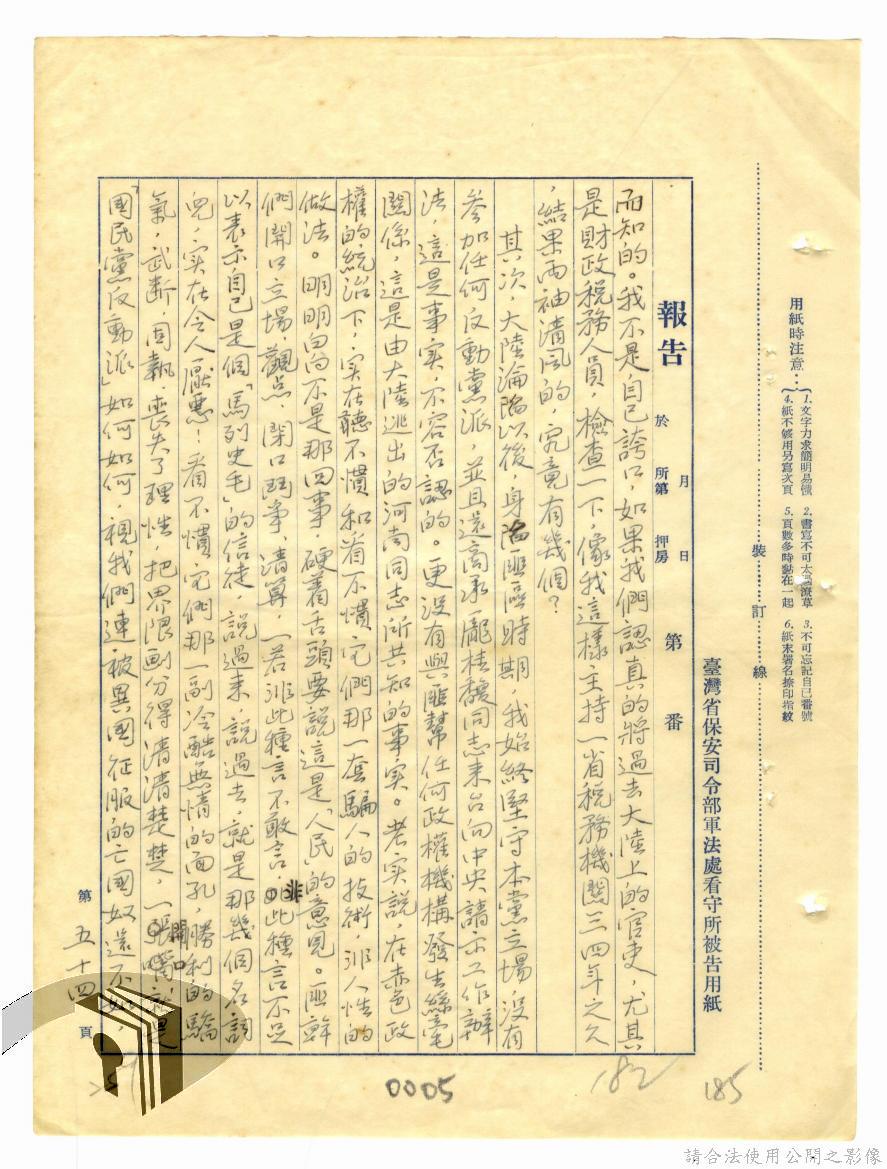 用紙時注意：
1.文字力求簡明易懂 2.書寫不可太過潦草 3.不可忘記自己番號
4.紙不够用另寫次頁 5.頁數多時黏在一起 6.紙末署名捺印指紋
裝訂線
臺灣省保安司令部軍法處看守所被告用紙
報告 於 月 日 所第 押房 第 番
而知的。我不是自己誇口，如果我們認真的將過去大陸上的官吏，尤其
是財政稅務人員，檢查一下，像我這樣主持一省稅務機關三四年之久
，結果兩袖清風的，究竟有幾個？
其次，大陸淪陷以後，身陷匪區時期，我始終堅守本黨立場，沒有
參加任何反動黨派，並且還商承龐桂馥同志來台向中央請示工作辦
法，這是事实，不容否認的。更沒有與匪幫任何政權機構發生絲毫
關係，這是由大陸逃出的河南同志所共知的事实。老实說，在赤色政
權的統治下，实在聽不慣和看不慣它們那一套騙人的技術，非人性的
做法。明明白白不是那回事，硬着舌頭要說這是「人民」的意見。匪幹
們開口立場，觀点，閉口鬥爭、清算，一若非此種言不敢言，非此種言不足
以表示自己是個「馬列史毛」的信徒，說過來，說過去，就是那幾個名詞
兒，实在令人厭惡！看不慣它們那一副冷酷無情的面孔，勝利的驕
氣，武斷，固執，喪失了理性，把界限劃分得清清楚楚，一開口，就是
「國民黨反動派」如何如何，視我們連被異國征服的亡國奴還不如，
第五十四頁
0005
182
185
請合法使用公開之影像